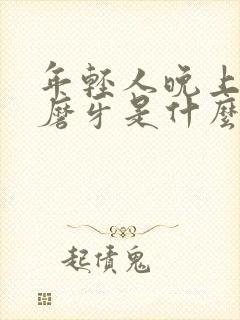 年轻人晚上
磨牙是什麽
起债鬼